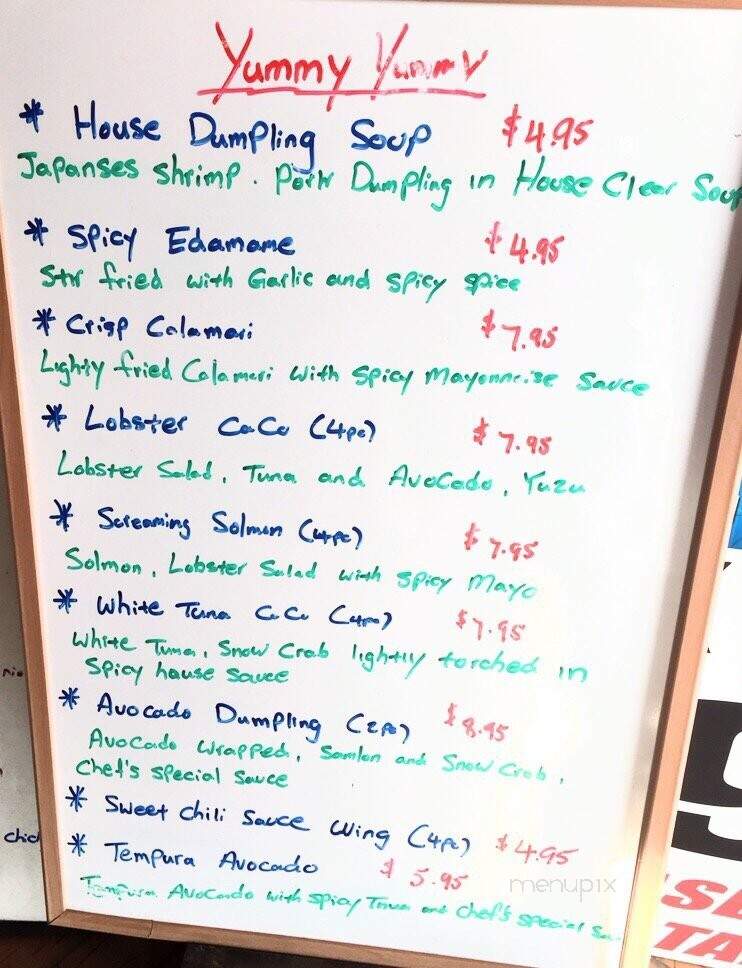 Yummy Yummy
* House Dumpling Soup $4.95
Japanses shrimp. Pork Dumpling in House Clear Soup
* Spicy Edamame $4.95
Stir fried with Garlic and spicy spice
* Crisp Calamari $7.95
Lightly fried Calamari with spicy Mayonnaise Sauce
* Lobster CaCu (4pc) $7.95
Lobster Salad, Tuna and Avocado, Yuzu
* Screaming Solmon (4pc) $7.95
Solmon, Lobster Salad with spicy Mayo
* White Tuna CaCu (4pc) $7.95
White Tuna, Snow Crab lightly torched in
spicy house sauce
* Avocado Dumpling (2pc) $8.95
Avocado wrapped, Samlon and Snow Crab,
Chef's special Sauce
* Sweet Chili Sauce Wing (4pc) $4.95
* Tempura Avocado $5.95
Tempura Avocado with spicy Tuna and chef's special
menupix
TA